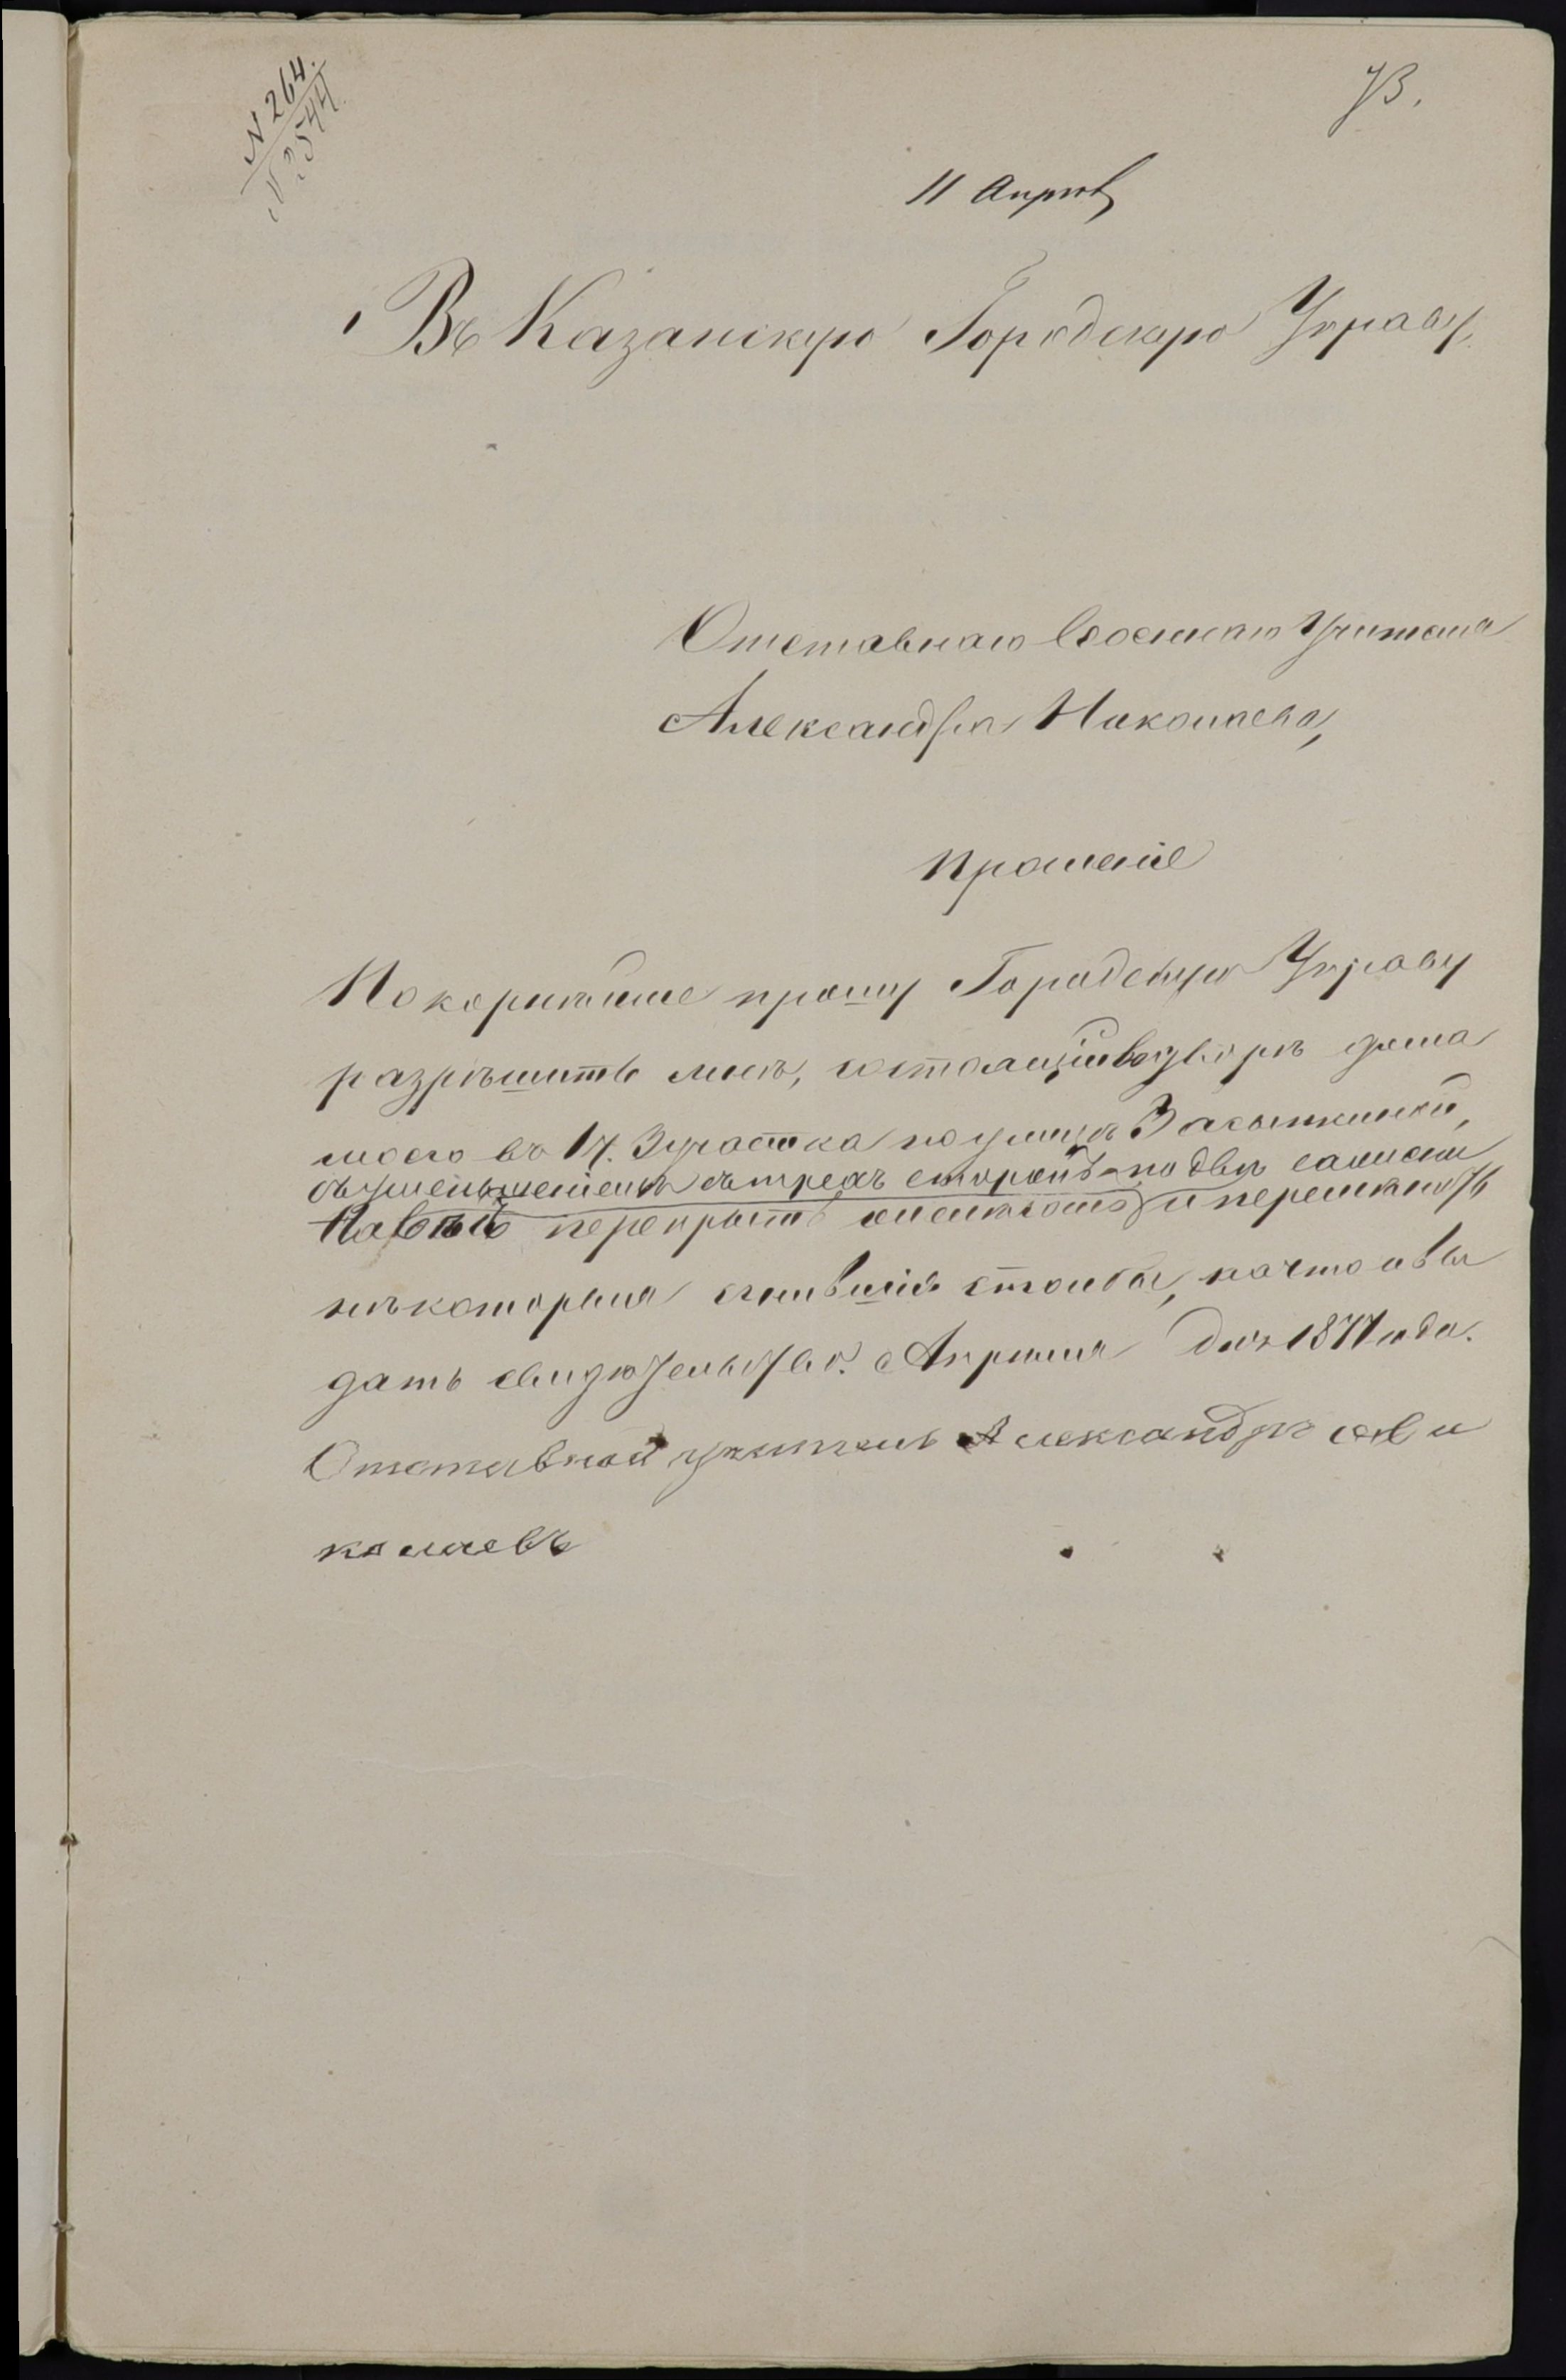 N 264.
N 2544.
73.
11 Апрѣл
Въ Казанскую Городскую Управу,
Отставнаго Военнаго Учителя
Александра Николаева,
Прошеніе
Покорнѣйше прошу Городскую Управу
разрѣшить мнѣ, состоящій во дворѣ дома
моего во 17. 3 участка по улицѣ Засыпкиной,
съ уменьшеніемъ съ трехъ сторонъ по двѣ сажени
Навѣсъ перекрыть и перемѣнить
нѣкоторыя сгнившія столбы, на что и вы
дать свидѣтельство. Апрѣля дня 1877 года.
Отставной учитель Александръ Ни
колаевъ